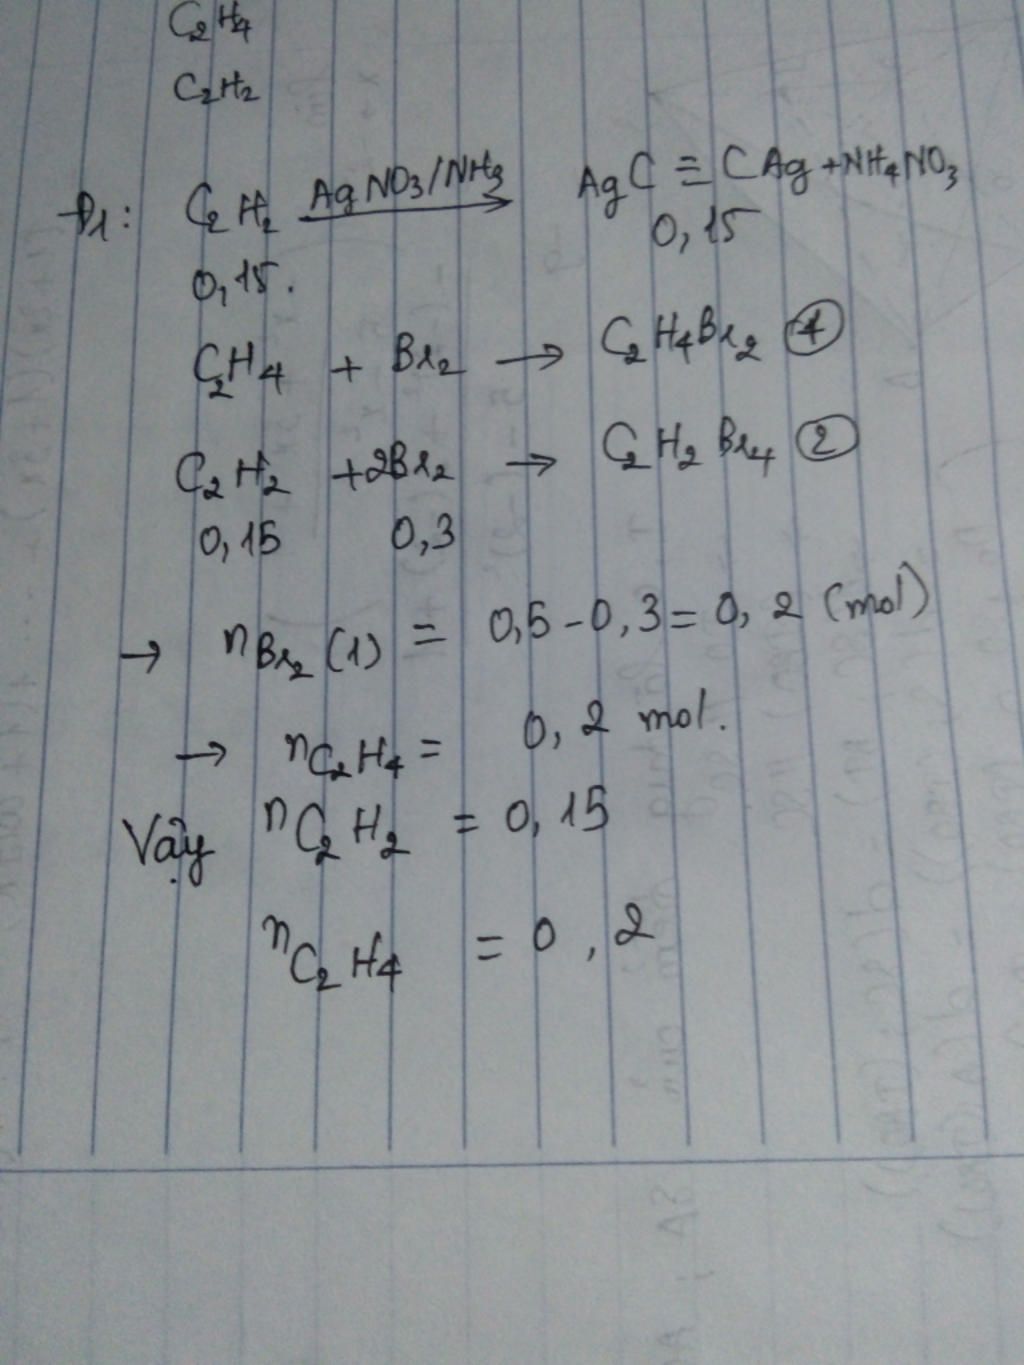 C₂H₄
C₂H₂
P1: C₂H₂ AgNO₃/NH₃ → AgC ≡ CAg + NH₄NO₃
0,15. 0,15
C₂H₄ + Br₂ → C₂H₄Br₂ ①
C₂H₂ + 2Br₂ → C₂H₂Br₄ ②
0,15 0,3
→ nBr₂ (1) = 0,5 - 0,3 = 0,2 (mol)
→ nC₂H₄ = 0,2 mol.
Vậy nC₂H₂ = 0,15
nC₂H₄ = 0,2